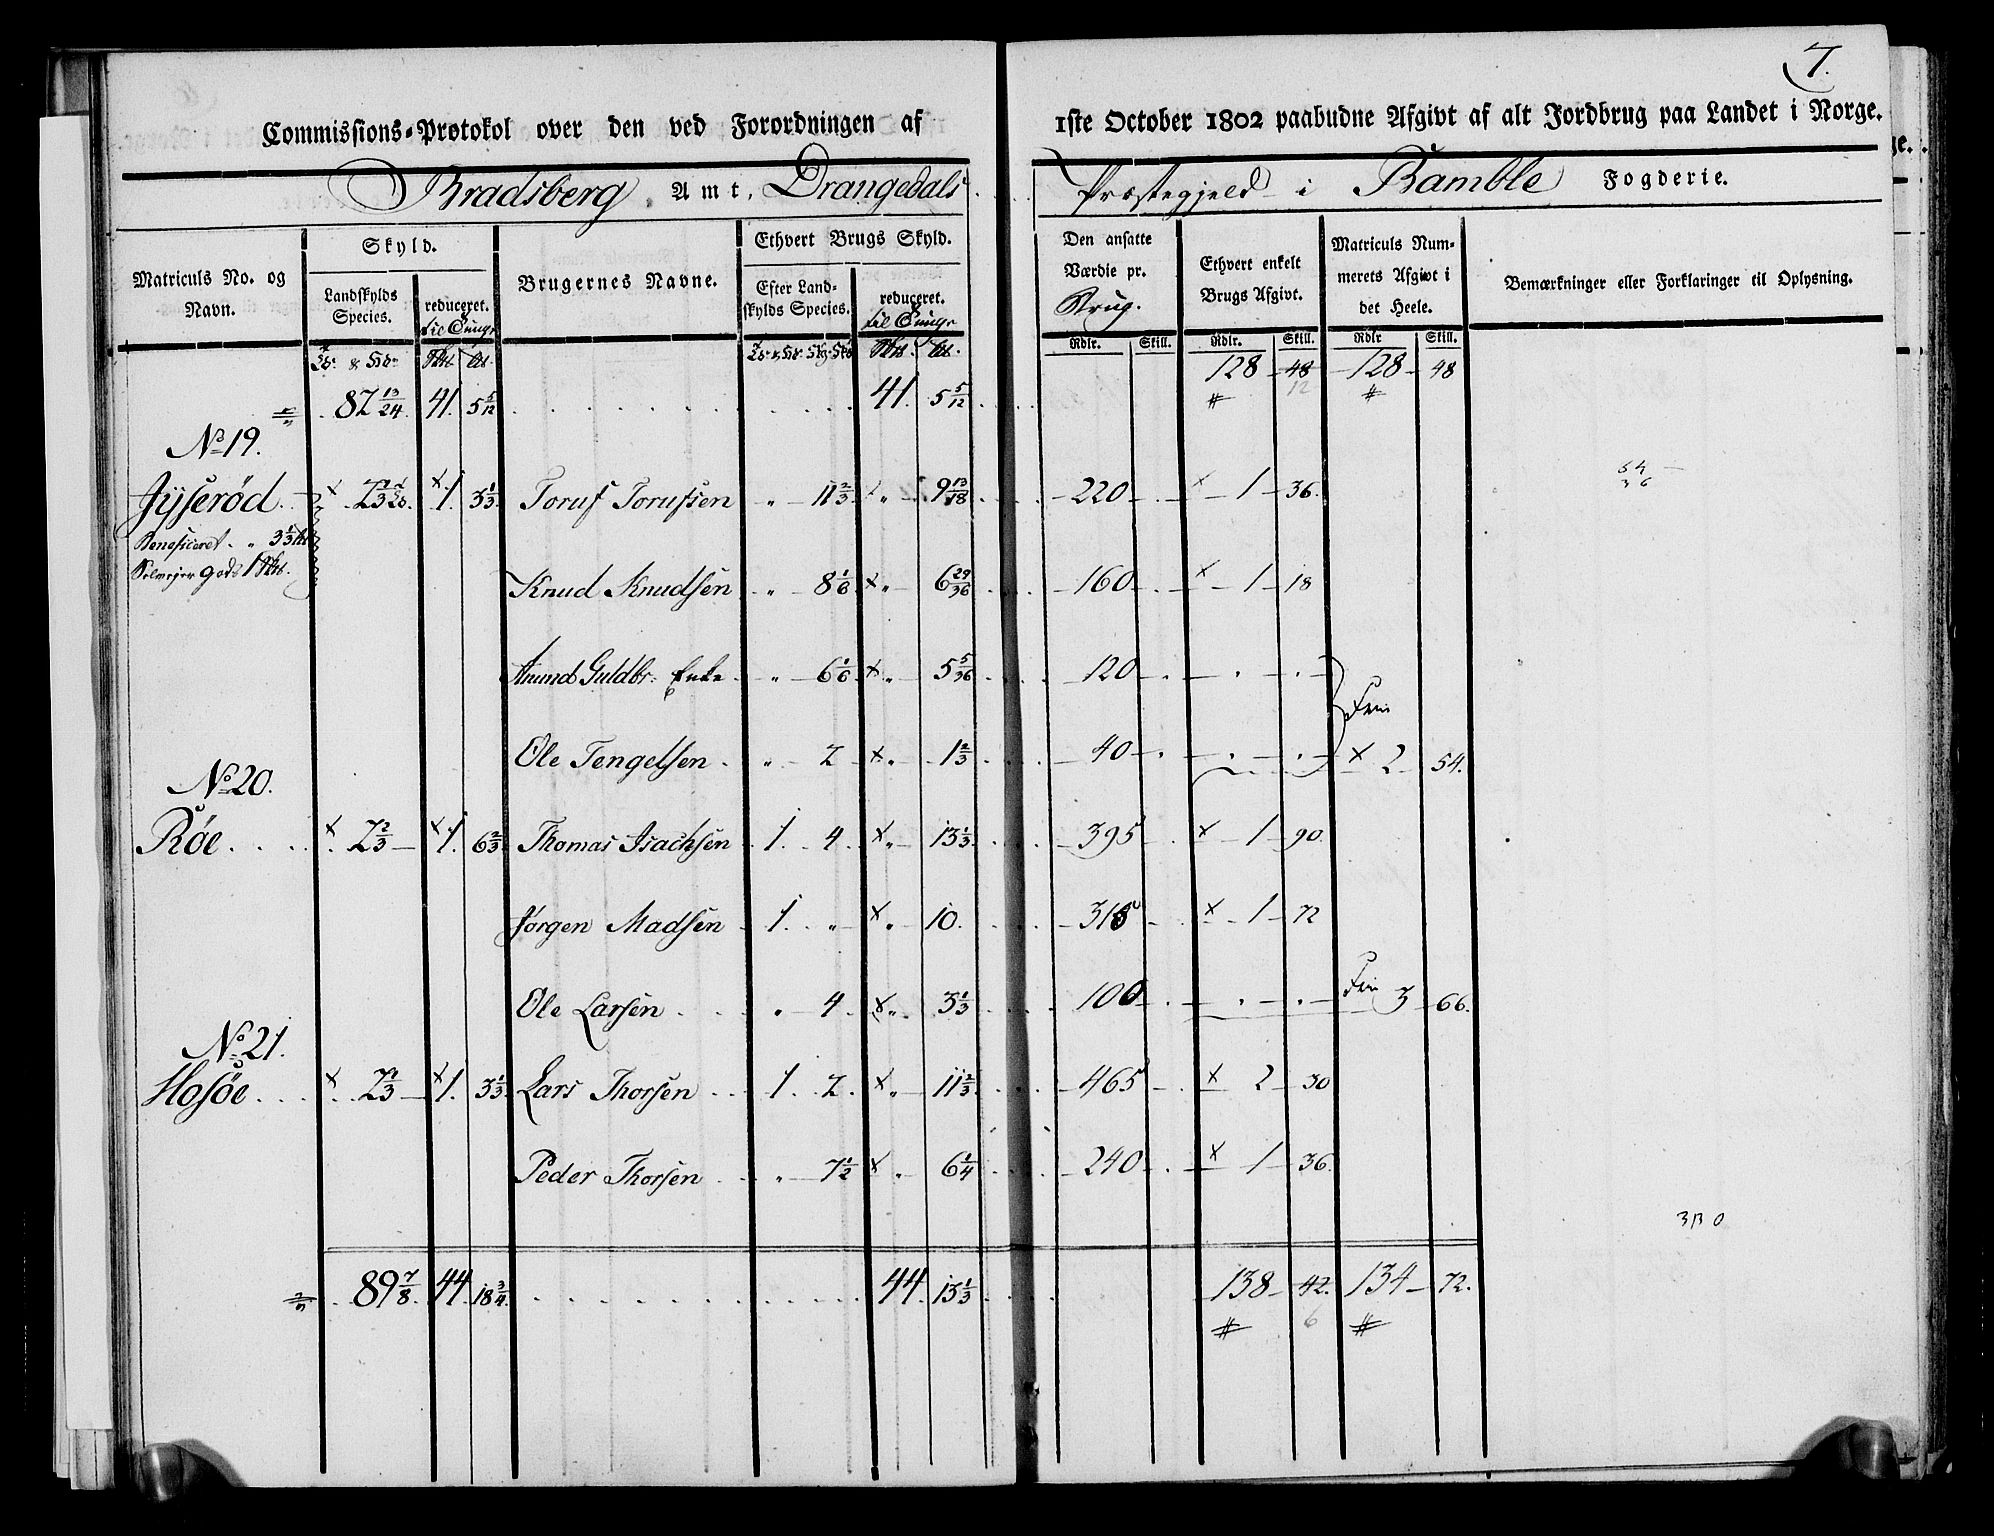 7.
Commissions-Protokol over den ved Forordningen af 1ste October 1802 paabudne Afgivt af alt Jordbrug paa Landet i Norge.
Bradsberg Amt, Drangedals Præstegjeld i Bamble Fogderie.
Matriculs No. og Navn. Skyld. Brugernes Navne. Ethvert Brugs Skyld. Den ansatte Værdie pr. Brug. Ethvert enkelt Brugs Afgivt. Matriculs Nummerets Afgivt i det Heele. Bemærkninger eller Forklaringer til Oplysning.
Landskylds Species. reduceret. til Efter Landskylds Species. reduceret. til
Rdlr. Skill. Rdlr. Skill. Rdlr Skill.
128 48 128 48
12
87 13/24 41. 5 5/12 41. 5 5/12
No 19.
Jyserød 2 1/3 1. 3 1/3 Toruf Torufsen " 11 2/3 " 9 13/18 220 1 36.
Beneficeret " 3 1/3
Selvejer Gods 1
54
36
Knud Knudsen " 8 1/6 " 6 29/36 160 1 18
Amund Guldbr: Enke " 6 1/6 " 5 5/36 120
Frie
Ole Tengelsen " 2 " 1 2/3 40 2 54.
No 20.
Røe 2 2/3 1. 6 2/3 Thomas Isachsen 1. 4. " 13 1/3 395 1 90.
Jørgen Madsen 1. " " 10. 315 1 72
Ole Larsen " 4. " 3 1/3 100 Frie 3 66.
No 21.
Hosøe 2 1/3 1. 3 1/3 Lars Thorsen 1. 2. " 11 2/3 465 2 30
Peder Thorsen " 7 1/2 " 6 1/4 240 1 36.
89 7/8 44. 18 3/4 44. 13 1/3 138 42. 134 72.
6